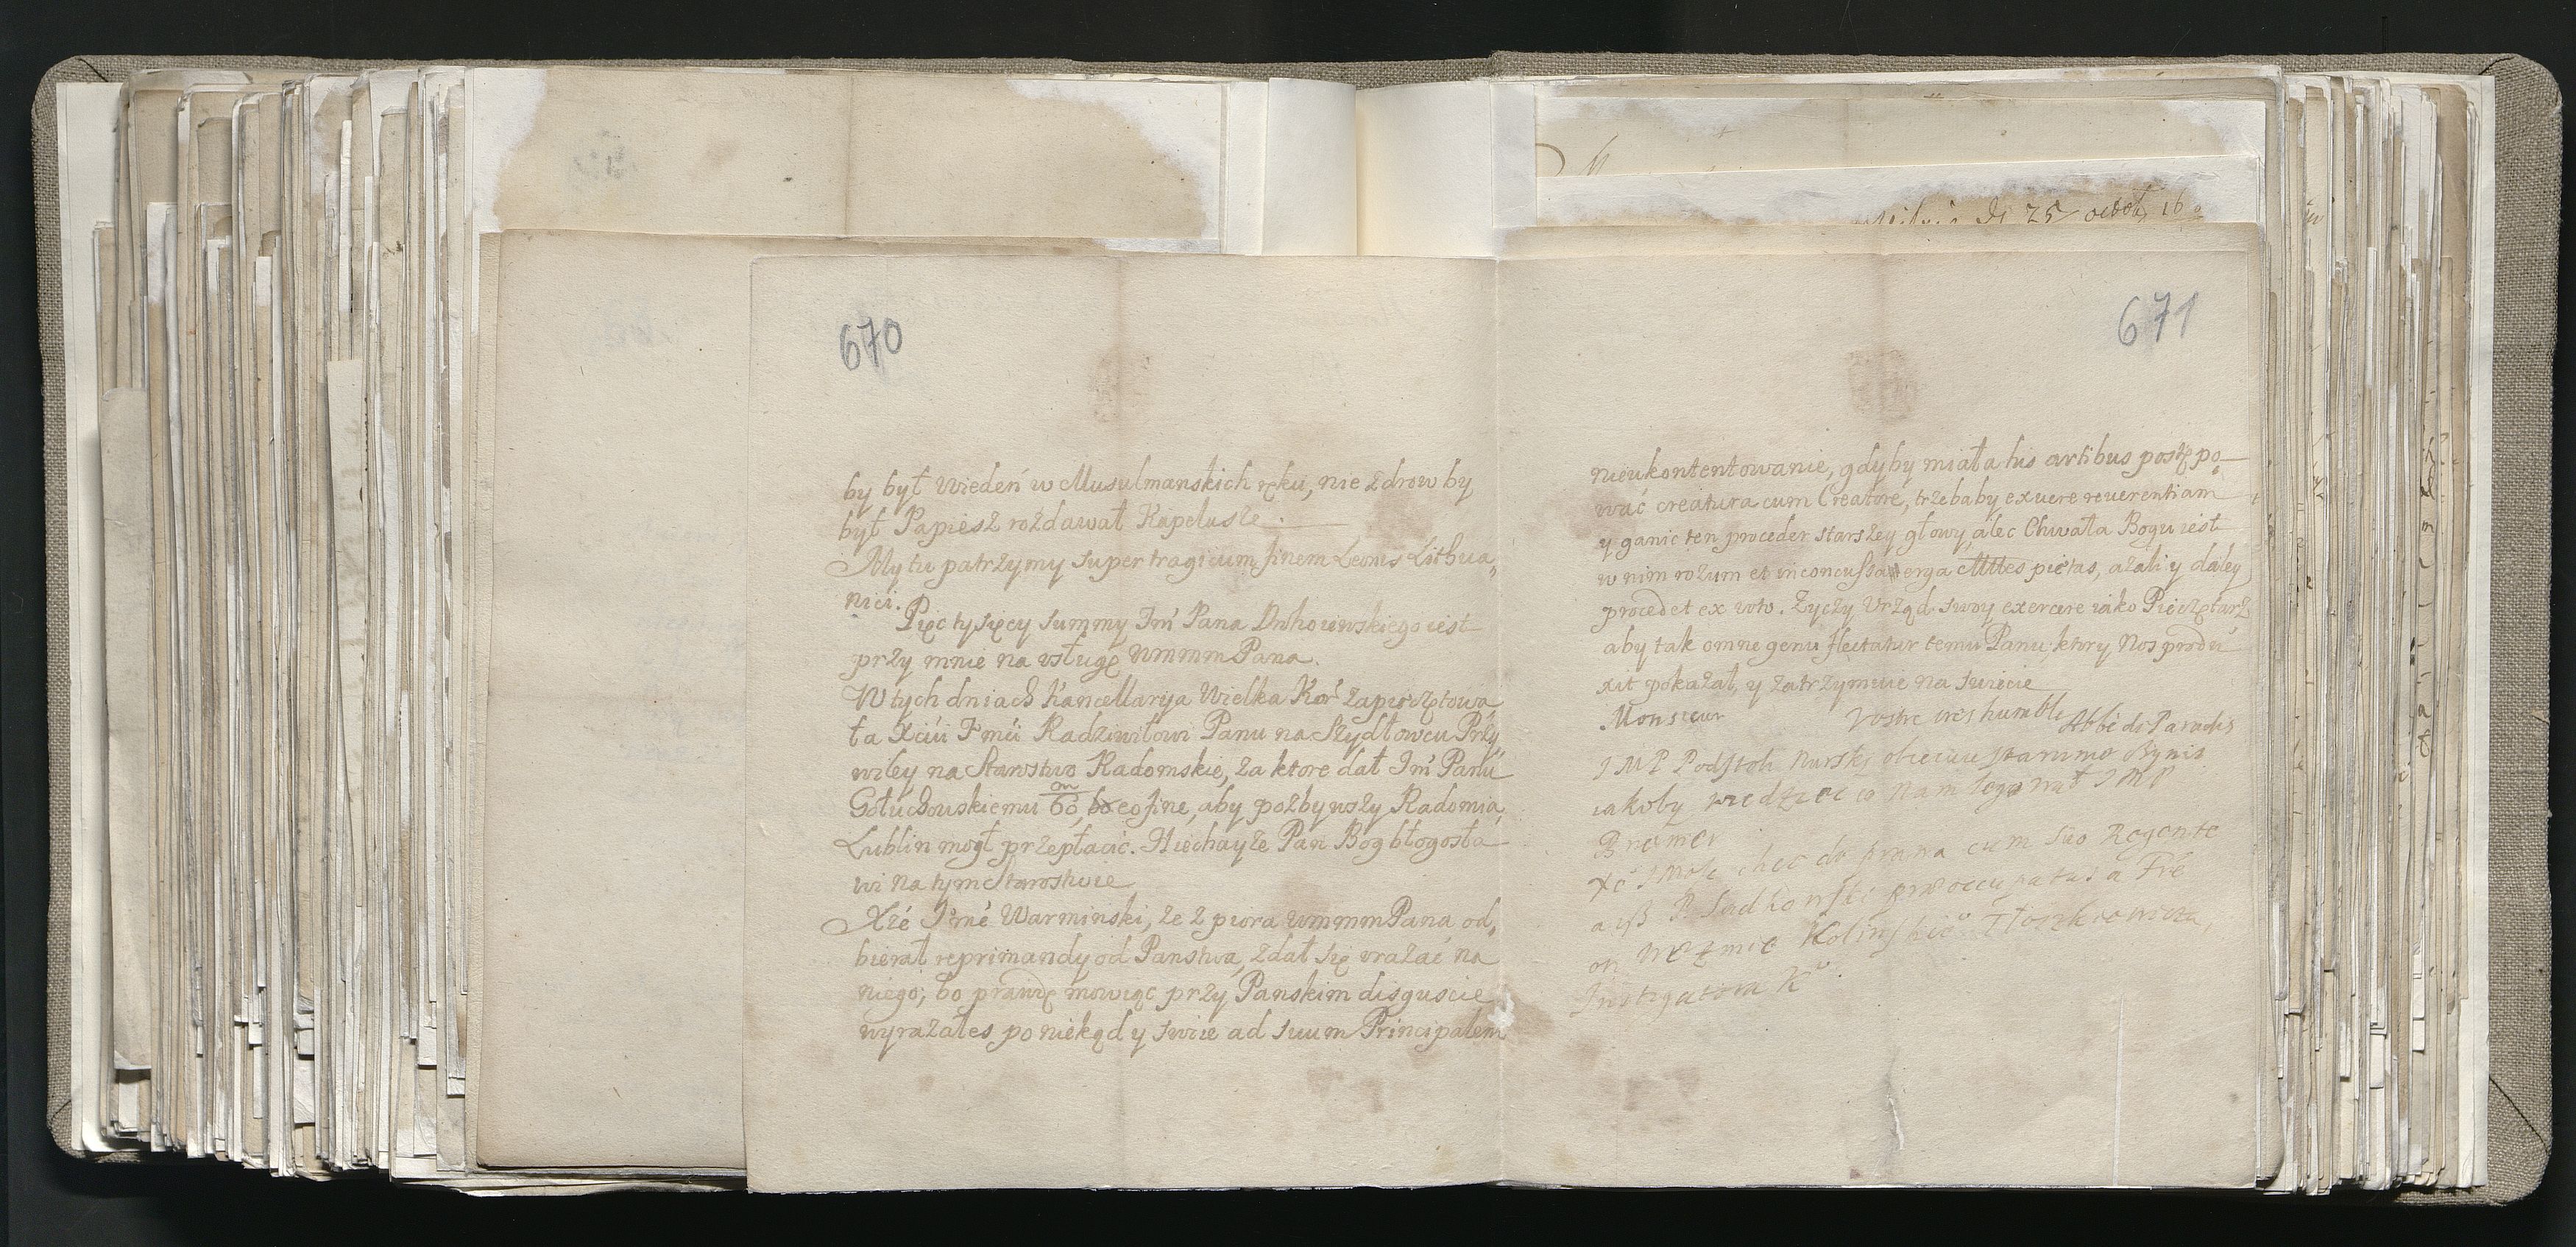 670
by był Wiedeń w Musulmanskich ręku, nie zdrow by
był Papiesz rozdawał Kapelusze.
My tu patrzymy super tragicum finem Leonis Lithua„
nici.
Pięc tysięcy summy Jm Pana Drohoiewskiego iest
przy mnie na usługę WmmmPana.
W tych dniach Kancellarya Wielka Kor zapieczętowa„
ła Xciu Jmci Radziwiłowi Panu na Szydłowcu Przy„
wiley na Starostwo Radomskie, za ktore dał Jm Panu
Gołuchowskiemu 60, eo fine, aby pozbywszy Radomia,
Lublin mogł przepłacić. Niechayże Pan Bog błogosła„
wi na tym Starostwie
Xże Jmć Warminski, że z piora WmmmPana od„
bierał reprimandy od Panstwa, zdał się urażać na
niego; bo prawdę mowiąc przy Panskim disguscie
wyrażałes poniekąd y swoie ad suum Principalem
25 octob 16
671
nieukontentowanie, gdyby miała his artibus postępo„
wać creatura cum Creatore, trzebaby exuere reverentiam
y ganic ten proceder starszey głowy, alec Chwała Bogu iest
w nim rozum et inconcussa erga pietas, azali y daley
procedet ex voto. Zyczy Urząd swoy exercere iako Pieczętarz
aby tak omne genu flectatur temu Panu, ktory nos produ„
xit pokazał, y zatrzymuie na swiecie
Monsieur Vostre tres humble Abbé de Paradis
JMP Podstoli Nurski obiecuie
iakoby wiedziec co nam legował JMP
Bremer
chce do prawa cum suo Regente
P. Sadkowski praeoccupatus a
on weźmie
Instygatora K